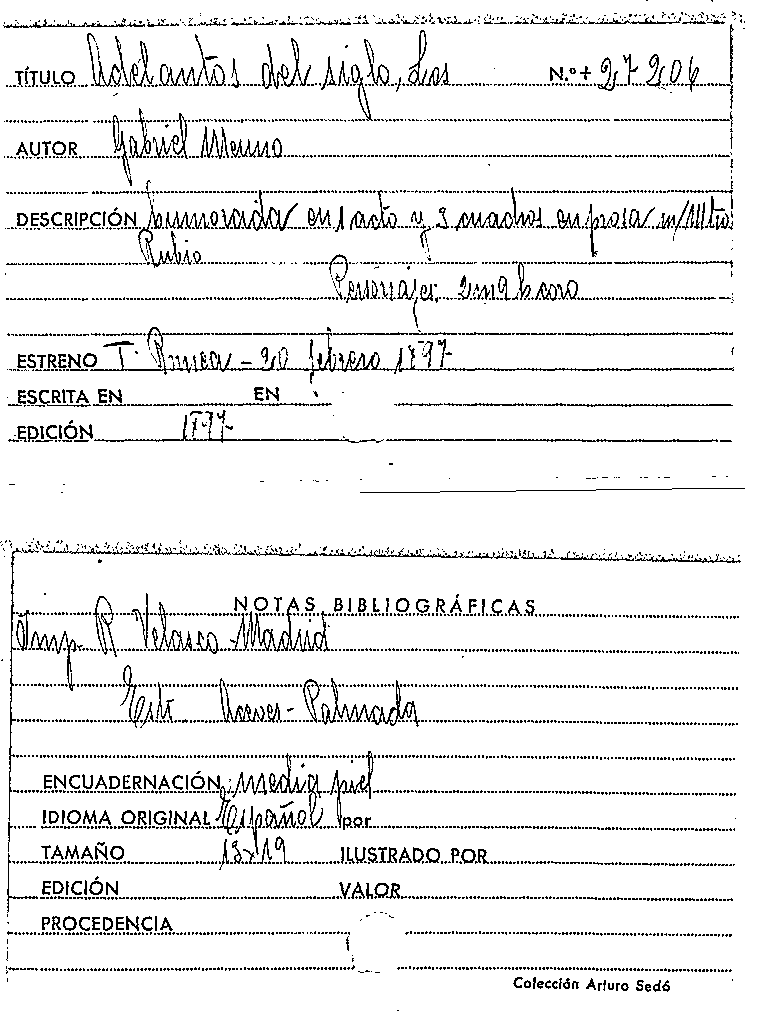 TÍTULO Adelantos del siglo, Los N.º + 27206
AUTOR Gabriel Merino
DESCRIPCIÓN humorada en 1 acto y 3 cuadros en prosa m/Mtro
Rubio
Personajes: 2m 9h coro
ESTRENO T. - 20 febrero 1897
ESCRITA EN EN
EDICIÓN 1897
NOTAS BIBLIOGRÁFICAS
Imp. R Velasco - Madrid
- Palmada
ENCUADERNACIÓN media piel
IDIOMA ORIGINAL Español por
TAMAÑO 13x19 ILUSTRADO POR
EDICIÓN VALOR
PROCEDENCIA
Colección Arturo Sedó